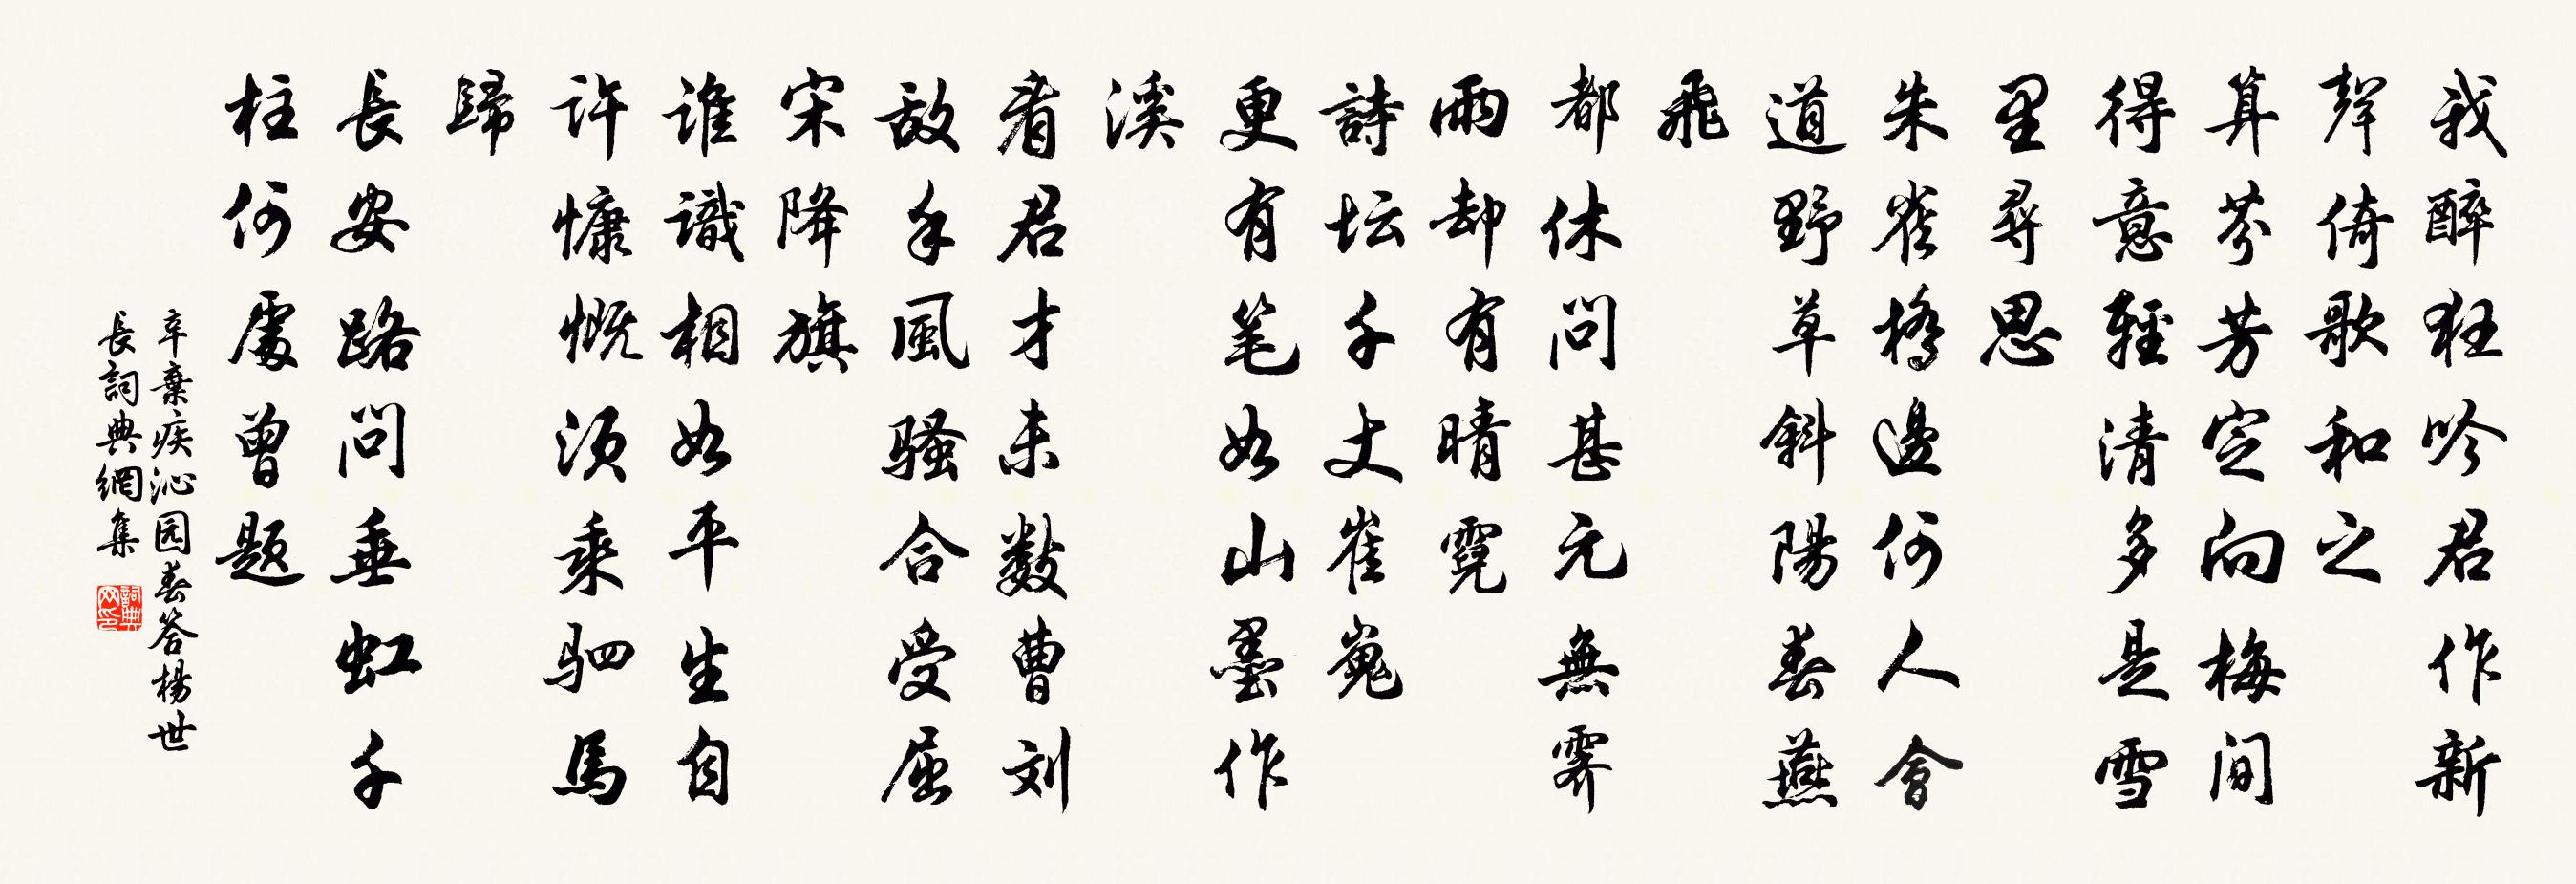 我醉狂吟君作新
聲倚歌和之
算芬芳定向梅间
得意輕清多是雪
里尋思
朱雀橋邊何人會
道野草斜陽春燕
飛
都休問甚元無霁
雨却有晴霓
詩坛千丈崔嵬
更有笔如山墨作
溪
看君才未数曹刘
敌手風骚合受屈
宋降旗
谁識相如平生自
许慷慨须乘驷馬
歸
長安路問垂虹千
柱何處曾题
辛棄疾沁园春答楊世
長詞典網集
詞典网印